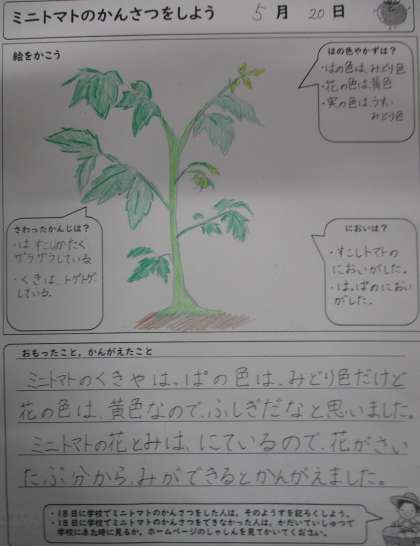 ミニトマトのかんさつをしよう 5月 20日
絵をかこう
はの色やかずは?
・はの色は、みどり色
・花の色は、黄色
・実の色は、うすい
みどり色
さわったかんじは?
・は すこしかたく
ザラザラしている
・くきは、トゲトゲ
している。
においは?
・すこしトマトの
においがした。
・は。ぱのにおい
がした。
おもったこと,かんがえたこと
ミニトマトのくきやは。ぱの色は、みどり色だけど
花の色は、黄色なので、ふしぎだなと思いました。
ミニトマトの花とみは、にているので、花がさい
たぶ分から、みができるとかんがえました。
・18日に学校でミニトマトのかんさつをした人は、そのようすを記ろくしよう。
・18日に学校でミニトマトのかんさつをできなかった人は、かだいていしゅつで
学校にきた時に見るか、ホームページのしゃしんを見てかいてください。